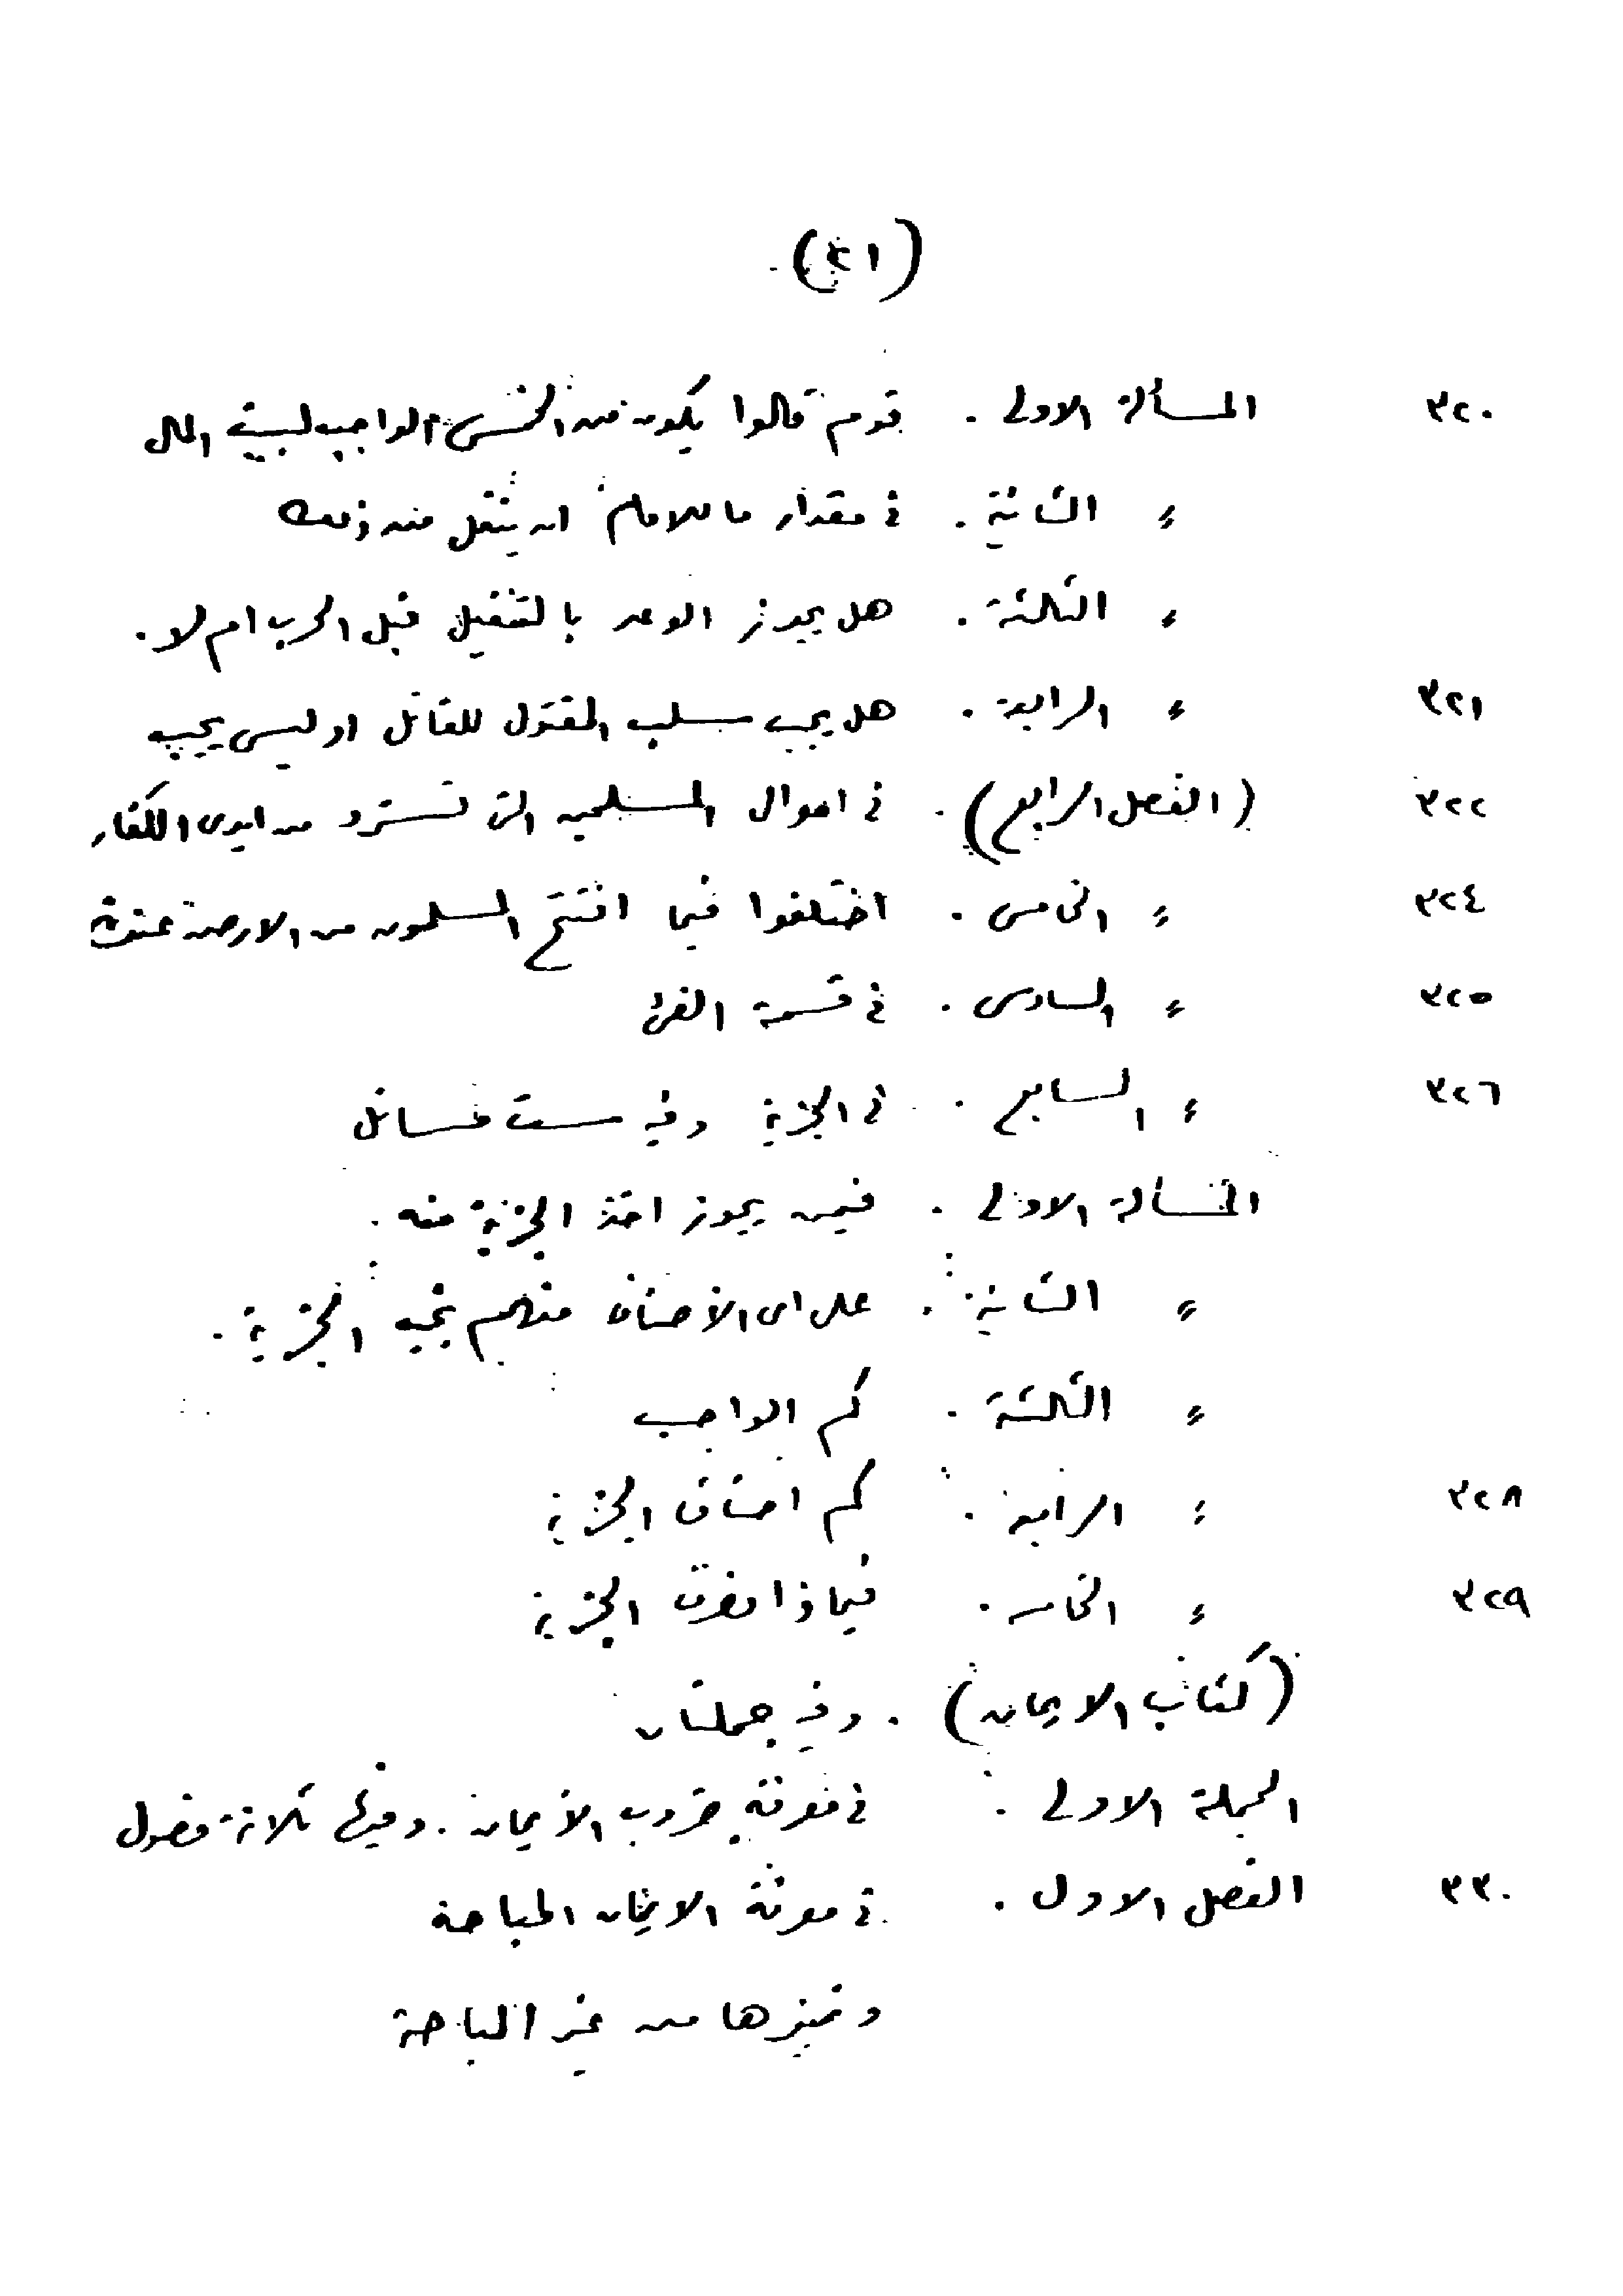 (٢١)
٣٢٠ المسألة الاولى . قوم قالوا يكون من الخمس الواجب لبيت المال
〃 الثانية . في مقدار ما للامام ان ينفل منه ذلك
〃 الثالثة . هل يجوز الوعد بالتنفيل قبل الحرب ام لا .
٣٢١ 〃 الرابعة . هل يجب سلب المقتول للقاتل او ليس يجب
٣٢٢ (الفصل الرابع) . في اموال المسلمين التي تسترد من ايدي الكفار
٣٢٤ 〃 الخامس . اختلفوا فيما افتتح المسلمون من الارض عنوة
٣٢٥ 〃 السادس . في قسمة الفئ
٣٢٦ 〃 السابع . في الجزية وفيه ست مسائل
المسألة الاولى . فيمن يجوز اخذ الجزية منه .
〃 الثانية . على اي الأصناف منهم تجب الجزية .
〃 الثالثة . كم الواجب
٣٢٨ 〃 الرابعة . كم اصناف الجزية
٣٢٩ 〃 الخامسة . فيماذا تصرف الجزية
(كتاب الايمان) . وفيه جملتان
الجملة الاولى . في معرفة ضروب الأيمان . وفيها ثلاثة فصول
٣٣٠ الفصل الاول . في معرفة الايمان المباحة
وتميزها من غير المباحة